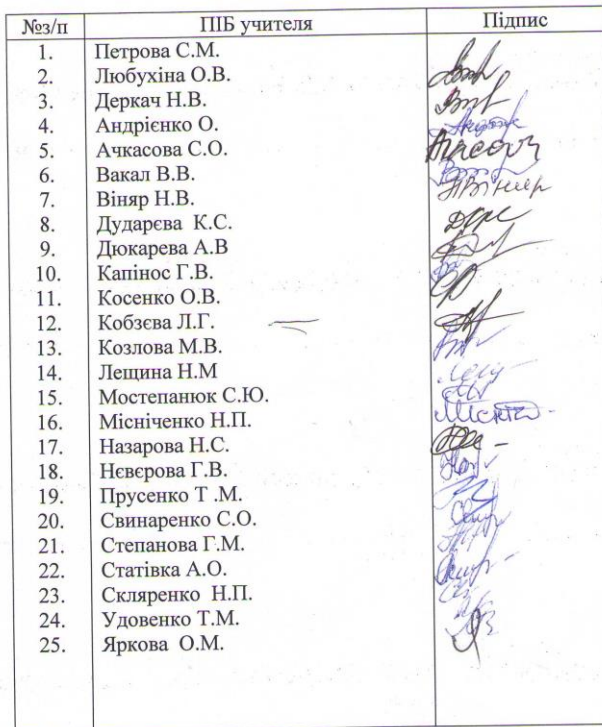 №з/п ПІБ учителя Підпис
1. Петрова С.М.
2. Любухіна О.В.
3. Деркач Н.В.
4. Андрієнко О.
5. Ачкасова С.О.
6. Вакал В.В.
7. Віняр Н.В.
8. Дударєва К.С.
9. Дюкарева А.В
10. Капінос Г.В.
11. Косенко О.В.
12. Кобзєва Л.Г.
13. Козлова М.В.
14. Лещина Н.М
15. Мостепанюк С.Ю.
16. Місніченко Н.П.
17. Назарова Н.С.
18. Нєвєрова Г.В.
19. Прусенко Т .М.
20. Свинаренко С.О.
21. Степанова Г.М.
22. Статівка А.О.
23. Скляренко Н.П.
24. Удовенко Т.М.
25. Яркова О.М.